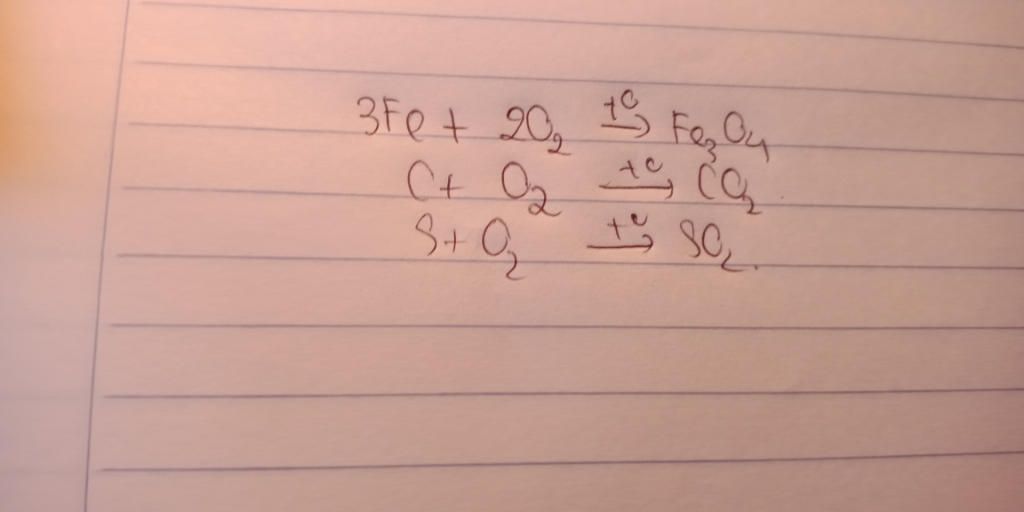 3Fe + 2O₂ —t°→ Fe₃O₄
C + O₂ —t°→ CO₂
S + O₂ —t°→ SO₂.